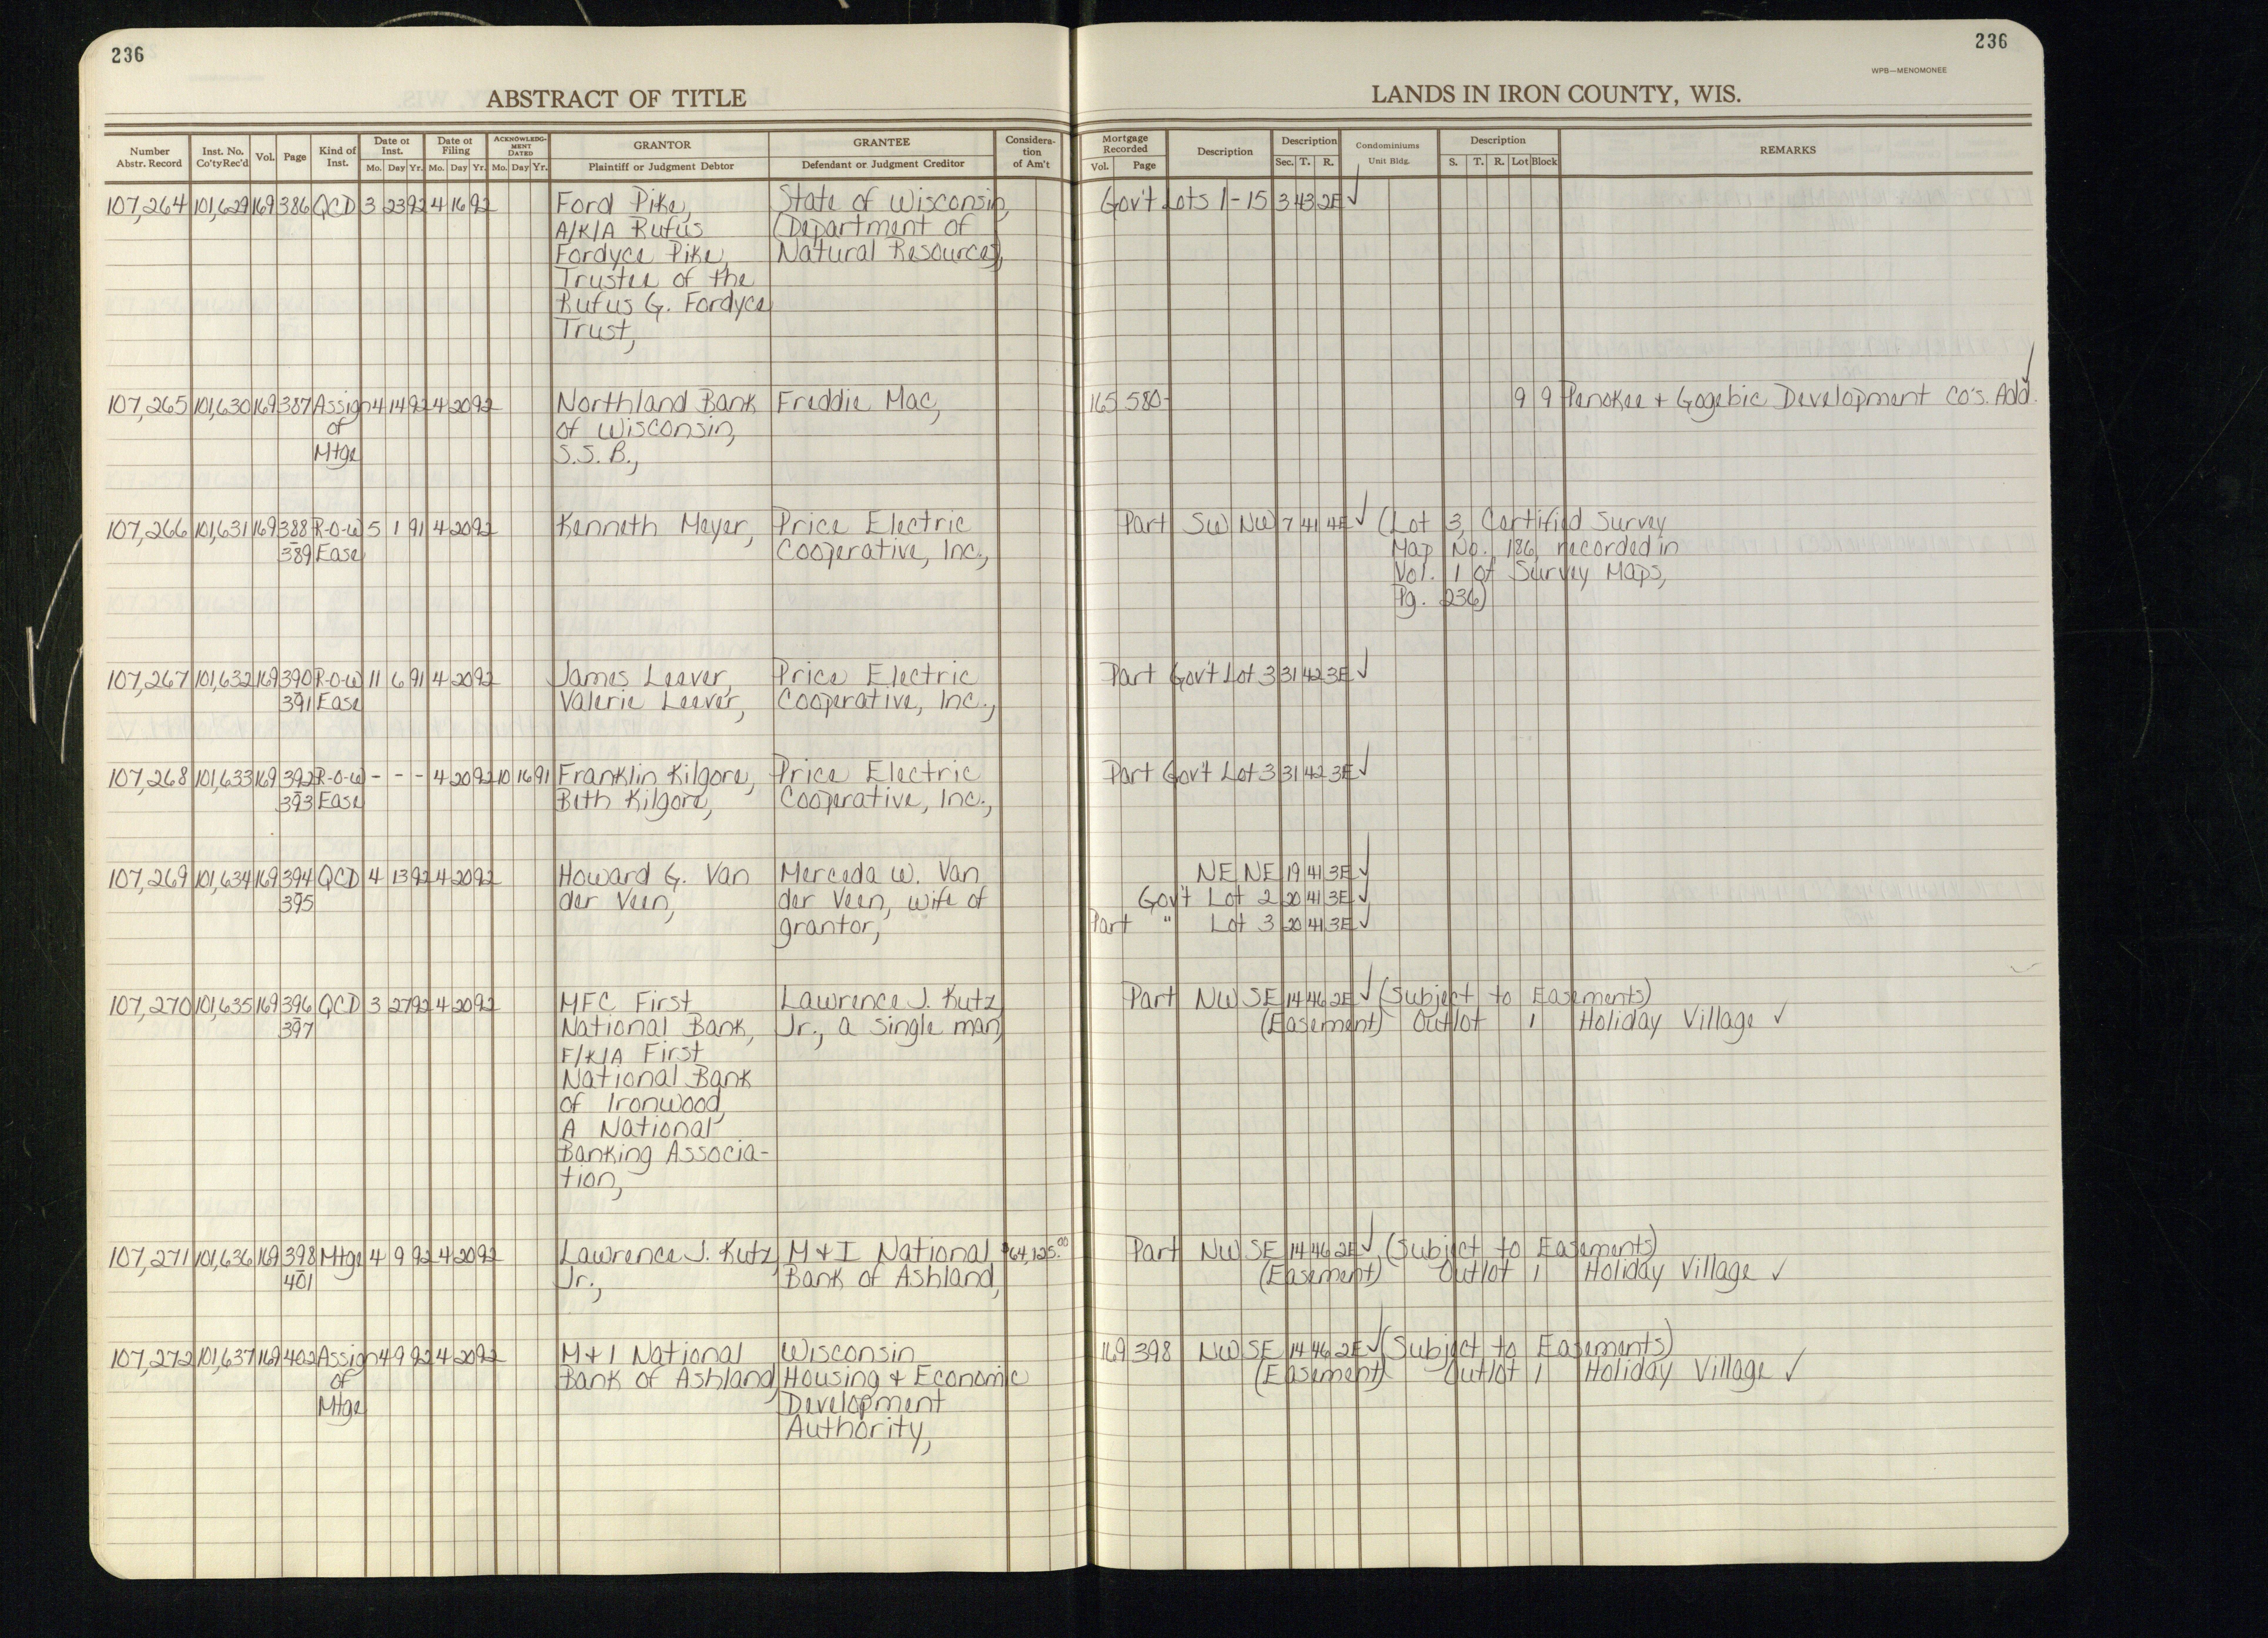 236
236
WPB—MENOMONEE
ABSTRACT OF TITLE
LANDS IN IRON COUNTY, WIS.
Number Abstr. Record
Inst. No. Co'ty Rec'd
Vol.
Page
Kind of Inst.
Date of Inst.
Mo. Day Yr.
Date of Filing
Mo. Day Yr.
ACKNOWLEDGMENT DATED
Mo. Day Yr.
GRANTOR
Plaintiff or Judgment Debtor
GRANTEE
Defendant or Judgment Creditor
Consideration of Am't
Mortgage Recorded
Vol. Page
Description
Description
Sec. T. R.
Condominiums
Unit Bldg.
Description
S. T. R. Lot Block
REMARKS
107,264 101,629 169 386 QCD 3 23 92 4 16 92 Ford Pike, State of Wisconsin, Gov't Lots 1-15 3 43 2E ✓
A/K/A Rufus (Department of
Fordyce Pike, Natural Resources),
Trustee of the
Rufus G. Fordyce
Trust,
107,265 101,630 169 387 Assign 4 14 92 4 20 92 Northland Bank Freddie Mac, 165 580 9 9 Penokee + Gogebic Development Co's. Add. ✓
of of Wisconsin,
Mtge S.S.B.,
107,266 101,631 169 388 R-O-W 5 1 91 4 20 92 Kenneth Meyer, Price Electric Part SW NW 7 41 4E ✓ (Lot 3, Certified Survey
389 Ease Cooperative, Inc., Map No. 186, recorded in
Vol. 1 of Survey Maps,
Pg. 236)
107,267 101,632 169 390 R-O-W 11 6 91 4 20 92 James Leever, Price Electric Part Gov't Lot 3 31 42 3E ✓
391 Ease Valerie Leever, Cooperative, Inc.,
107,268 101,633 169 392 R-O-W - - - 4 20 92 10 16 91 Franklin Kilgore, Price Electric Part Gov't Lot 3 31 42 3E ✓
393 Ease Beth Kilgore, Cooperative, Inc.,
107,269 101,634 169 394 QCD 4 13 92 4 20 92 Howard G. Van Merceda W. Van NE NE 19 41 3E ✓
395 der Veen, der Veen, wife of Gov't Lot 2 20 41 3E ✓
grantor, Part " Lot 3 20 41 3E ✓
107,270 101,635 169 396 QCD 3 27 92 4 20 92 MFC First Lawrence J. Kutz Part NW SE 14 46 2E ✓ (Subject to Easements)
397 National Bank, Jr., a single man, (Easement) Outlot 1 Holiday Village ✓
F/K/A First
National Bank
of Ironwood,
A National
Banking Associa-
tion,
107,271 101,636 169 398 Mtge 4 9 92 4 20 92 Lawrence J. Kutz, M & I National $64,125.00 Part NW SE 14 46 2E ✓ (Subject to Easements)
401 Jr., Bank of Ashland, (Easement) Outlot 1 Holiday Village ✓
107,272 101,637 169 402 Assign 4 9 92 4 20 92 M & I National Wisconsin 169 398 NW SE 14 46 2E ✓ (Subject to Easements)
of Bank of Ashland, Housing & Economic (Easement) Outlot 1 Holiday Village ✓
Mtge Development
Authority,